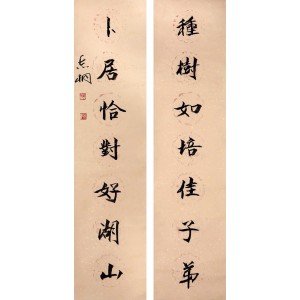 種樹如培佳子弟
卜居恰對好湖山